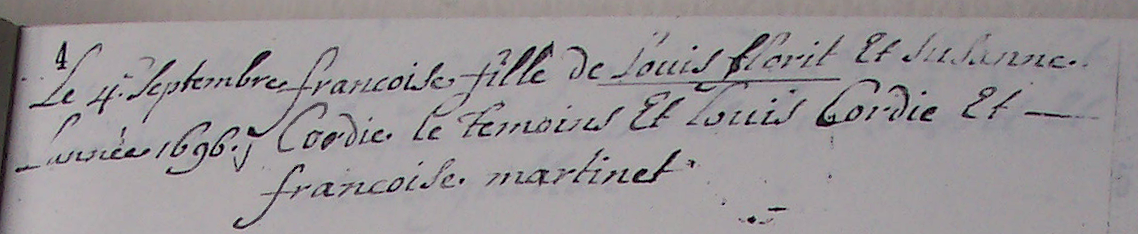 4
Le 4.e Septembre francoise fille de Louis florit Et susanne
Lannée 1696. Cordie le temoins Et Louis Cordie Et —
francoise martinet